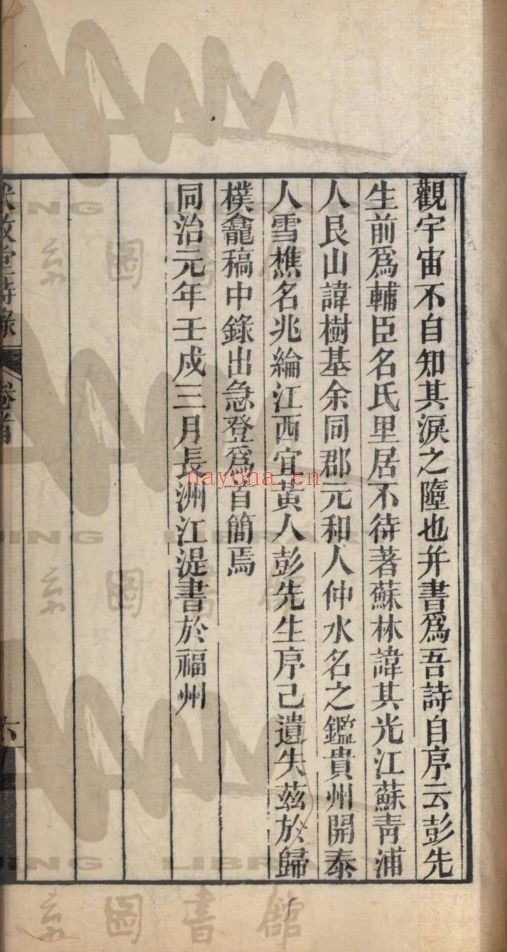 觀宇宙不自知其淚之墮也并書爲吾詩自序云彭先
生前爲輔臣名氏里居不待著蘇林諱其光江蘇青浦
人艮山諱樹基余同郡元和人仲水名之鑑貴州開泰
人雪樵名兆綸江西宜黃人彭先生序已遺失茲於歸
樸龕稿中錄出急登爲首簡焉
同治元年壬戍三月長洲江湜書於福州
堂詩錄
卷首
六
nayona.cn
LIBRAR
圖書館